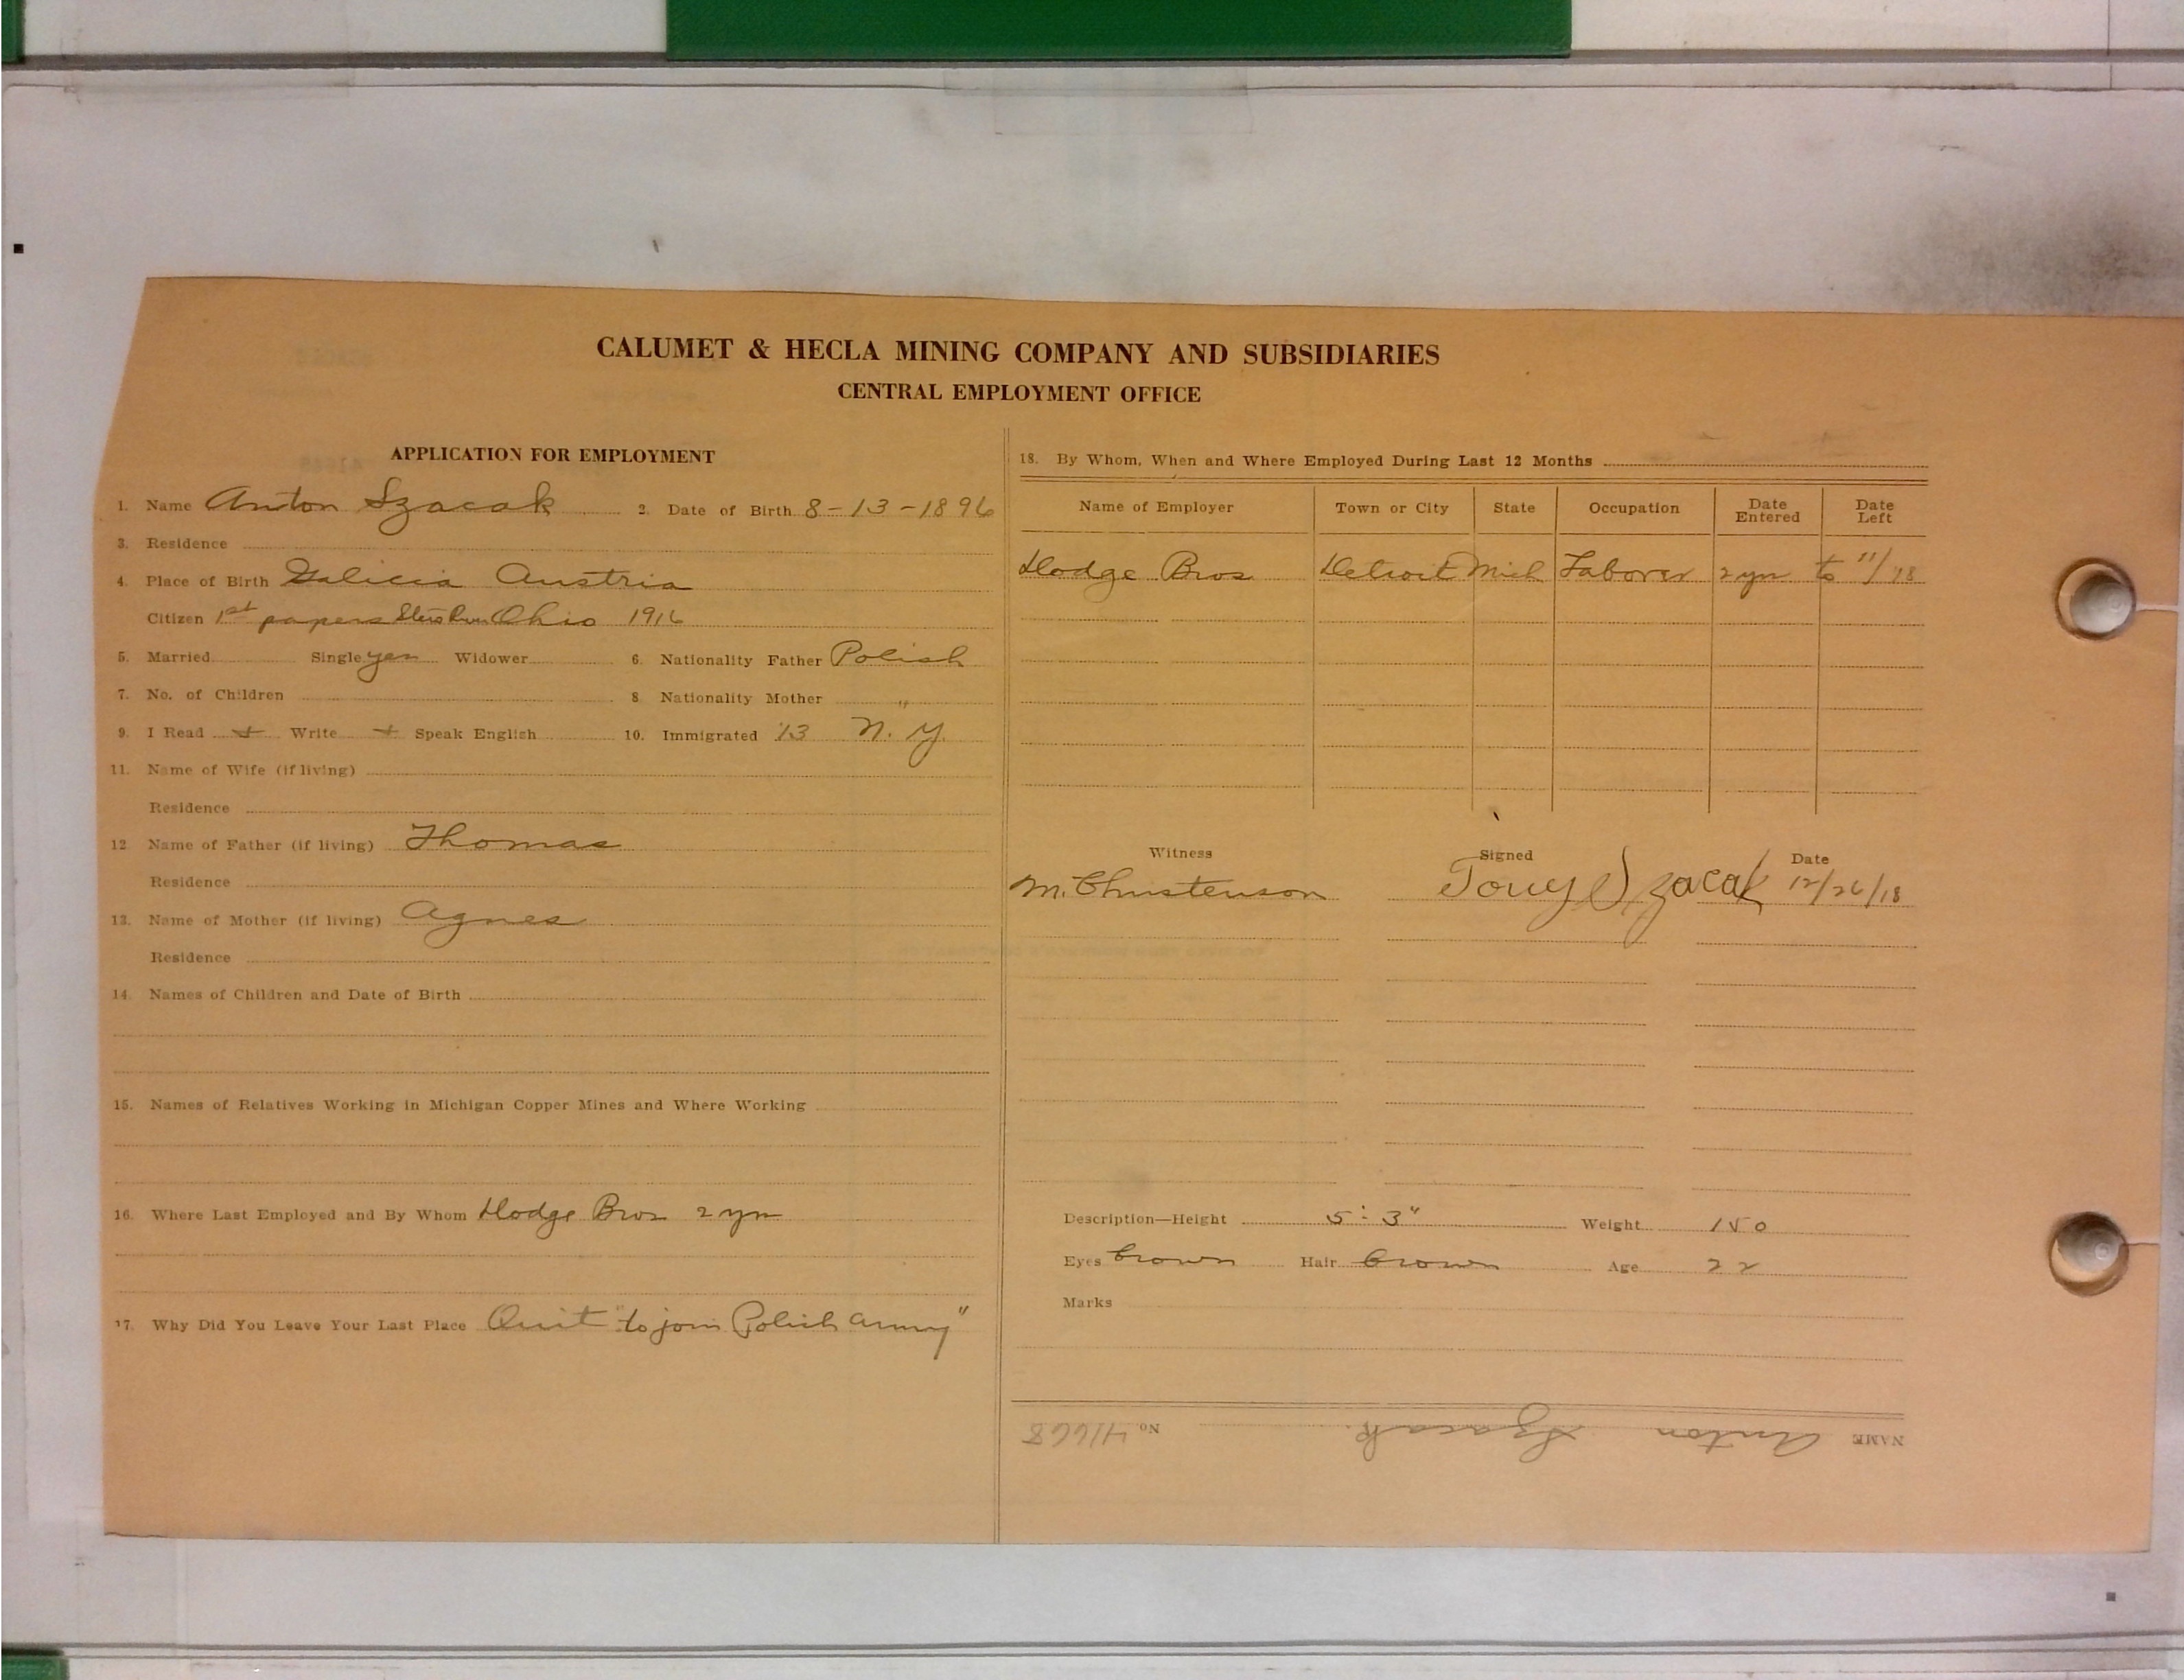 CALUMET & HECLA MINING COMPANY AND SUBSIDIARIES
CENTRAL EMPLOYMENT OFFICE
APPLICATION FOR EMPLOYMENT
1. Name Anton Szacak 2. Date of Birth 8-13-1896
3. Residence
4. Place of Birth Galicia Austria
Citizen 1st papers Ohio 1916
5. Married Single yes Widower 6. Nationality Father Polish
7. No. of Children 8. Nationality Mother "
9. I Read + Write + Speak English 10. Immigrated '13 N.Y.
11. Name of Wife (if living)
Residence
12. Name of Father (if living) Thomas
Residence
13. Name of Mother (if living) Agnes
Residence
14. Names of Children and Date of Birth
15. Names of Relatives Working in Michigan Copper Mines and Where Working
16. Where Last Employed and By Whom Dodge Bros 2 yrs
17. Why Did You Leave Your Last Place Quit "to join Polish army"
18. By Whom, When and Where Employed During Last 12 Months
Name of Employer Town or City State Occupation Date Entered Date Left
Dodge Bros Detroit Mich Laborer 2 yrs to 11/18
Witness Signed Date
M. Christenson Tony Szacak 12/26/18
Description—Height 5' 3" Weight 150
Eyes brown Hair brown Age 22
Marks
NAME Anton Szacak. No. 41668